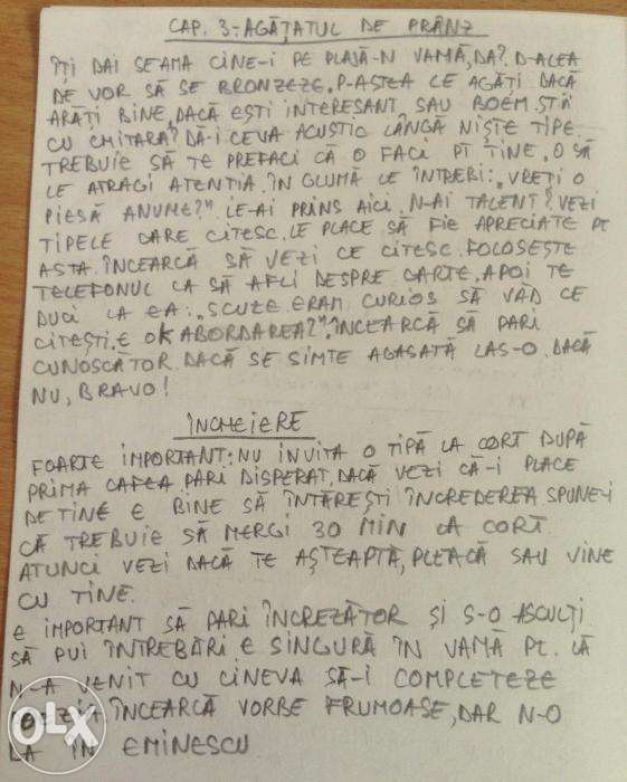 CAP. 3-AGĂȚATUL DE PRÂNZ
ÎȚI DAI SEAMA CINE-I PE PLAJĂ-N VAMĂ, DA? D-ALEA
DE VOR SĂ SE BRONZEZE. P-ASTEA LE AGĂȚI DACĂ
ARĂȚI BINE, DACĂ EȘTI INTERESANT SAU BOEM. STĂ
CU CHITARA? DĂ-I CEVA ACUSTIC LÂNGĂ NIȘTE TIPE.
TREBUIE SĂ TE PREFACI CĂ O FACI PT TINE. O SĂ
LE ATRAGI ATENTIA. ÎN GLUMĂ LE ÎNTREBI: „VREȚI O
PIESĂ ANUME?" LE-AI PRINS AICI. N-AI TALENT? VEZI
TIPELE CARE CITESC. LE PLACE SĂ FIE APRECIATE PT
ASTA. ÎNCEARCĂ SĂ VEZI CE CITESC. FOLOSEȘTE
TELEFONUL CA SĂ AFLI DESPRE CARTE, APOI TE
DUCI LA EA: „SCUZE ERAM CURIOS SĂ VĂD CE
CITEȘTI. E OK ABORDAREA?". ÎNCEARCĂ SĂ PARI
CUNOSCĂTOR. DACĂ SE SIMTE AGASATĂ LAS-O. DACĂ
NU, BRAVO!
ÎNCHEIERE
FOARTE IMPORTANT: NU INVITA O TIPĂ LA CORT DUPĂ
PRIMA CAFEA PARI DISPERAT, DACĂ VEZI CĂ-I PLACE
DE TINE E BINE SĂ ÎNTĂREȘTI ÎNCREDEREA SPUNE-I
CĂ TREBUIE SĂ MERGI 30 MIN LA CORT.
ATUNCI VEZI DACĂ TE AȘTEAPTĂ, PLEACĂ SAU VINE
CU TINE.
E IMPORTANT SĂ PARI ÎNCREZĂTOR ȘI S-O ASCULȚI
SĂ PUI ÎNTREBĂRI E SINGURĂ ÎN VAMĂ PT. CĂ
N-A VENIT CU CINEVA SĂ-I COMPLETEZE
ÎNCEARCĂ VORBE FRUMOASE, DAR N-O
DA ÎN EMINESCU
OLX